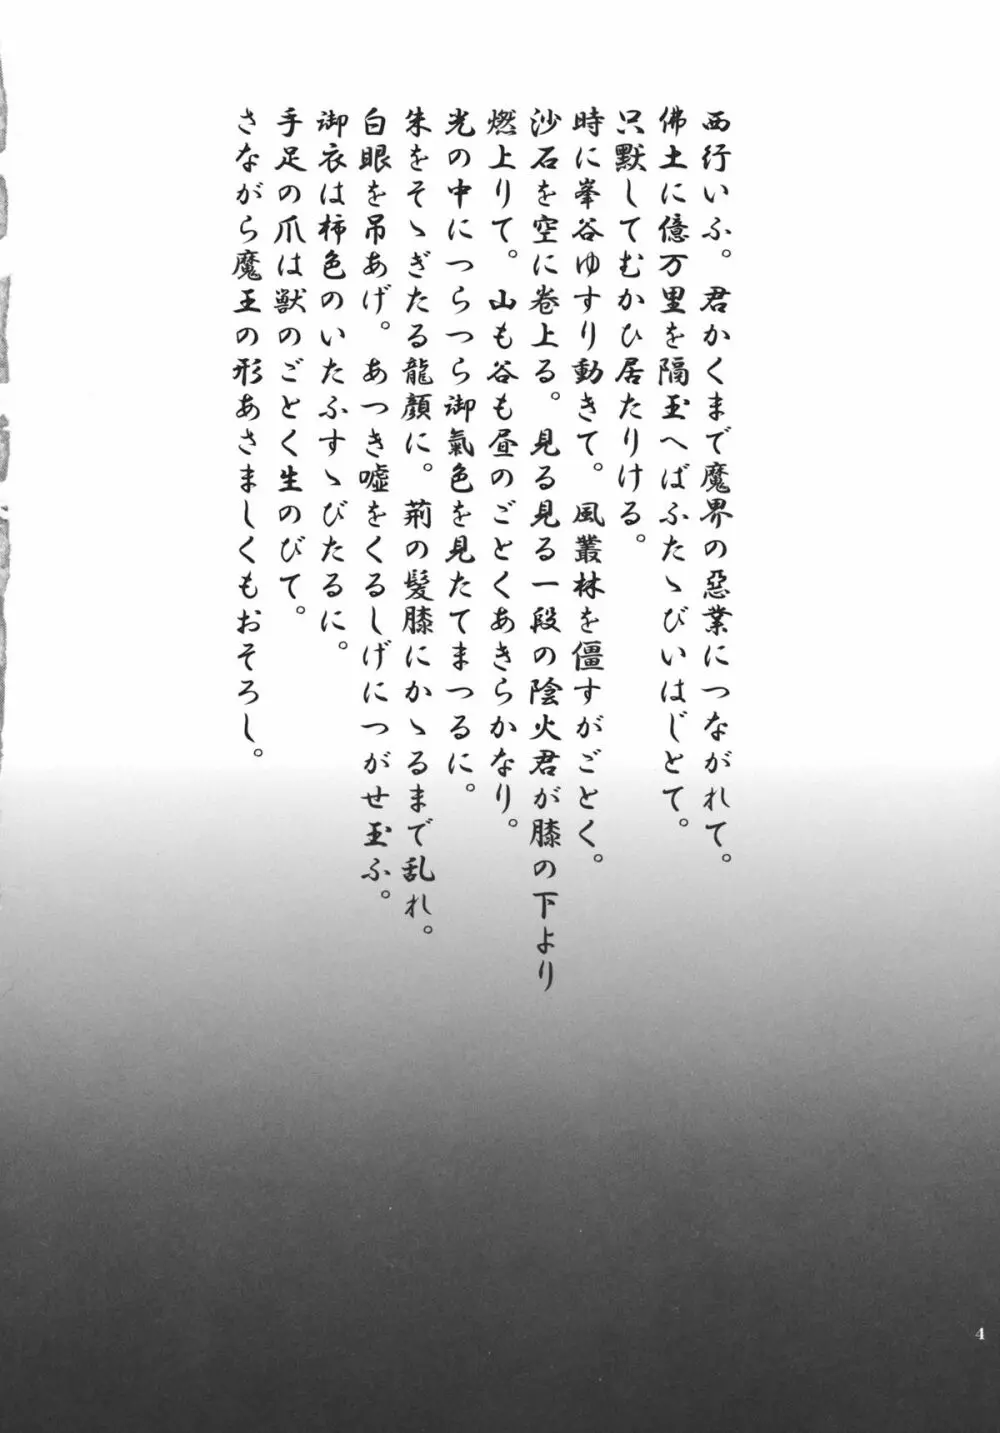 西行いふ。君かくまで魔界の惡業につながれて。
佛土に億万里を隔玉へばふたゝびいはじとて。
只默してむかひ居たりける。
時に峯谷ゆすり動きて。風叢林を僵すがごとく。
沙石を空に卷上る。見る見る一段の陰火君が膝の下より
燃上りて。山も谷も昼のごとくあきらかなり。
光の中につらつら御氣色を見たてまつるに。
朱をそゝぎたる龍顏に。荊の髪膝にかゝるまで乱れ。
白眼を吊あげ。あつき嘘をくるしげにつがせ玉ふ。
御衣は柿色のいたふすゝびたるに。
手足の爪は獣のごとく生のびて。
さながら魔王の形あさましくもおそろし。
4